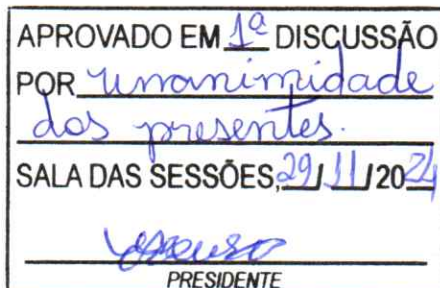 APROVADO EM 1ª DISCUSSÃO
POR unanimidade
dos presentes.
SALA DAS SESSÕES, 29/11/2024
PRESIDENTE